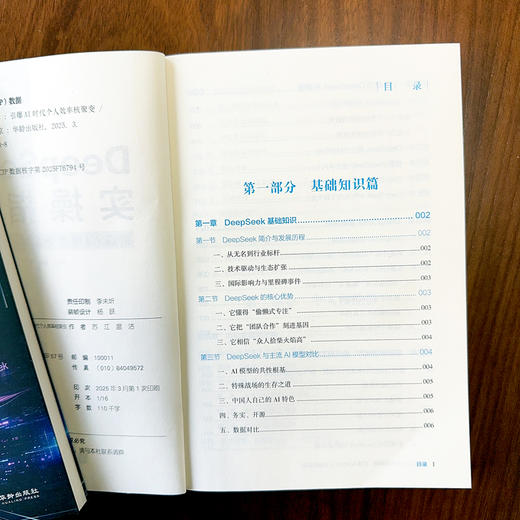 P) 数据
: 引爆 AI 时代个人效率核聚变 /
: 华龄出版社, 2025. 3.
-8
CIP 数据核字第 2025F76794 号
责任印制 李未圻
装帧设计 杨
作 者 苏 江
57 号 邮 编 100011
传 真 (010) 84049572
印 次 2025 年 3 月第 1 次印刷
开 本 1/16
字 数 110 千字
权必究
请与本社联系调换
华龄出版社
HUALING PRESS
目 录
第一部分 基础知识篇
第一章 DeepSeek 基础知识 002
第一节 DeepSeek 简介与发展历程 002
一、从无名到行业标杆 002
二、技术驱动与生态扩张 002
三、国际影响力与里程碑事件 003
第二节 DeepSeek 的核心优势 003
一、它懂得“偷懒式专注” 003
二、它把“团队合作”刻进基因 003
三、它相信“众人拾柴火焰高” 004
第三节 DeepSeek 与主流 AI 模型对比 004
一、AI 模型的共性根基 004
二、特殊战场的生存之道 005
三、中国人自己的 AI 特色 005
四、务实、开源 006
五、数据对比 006
目录 1